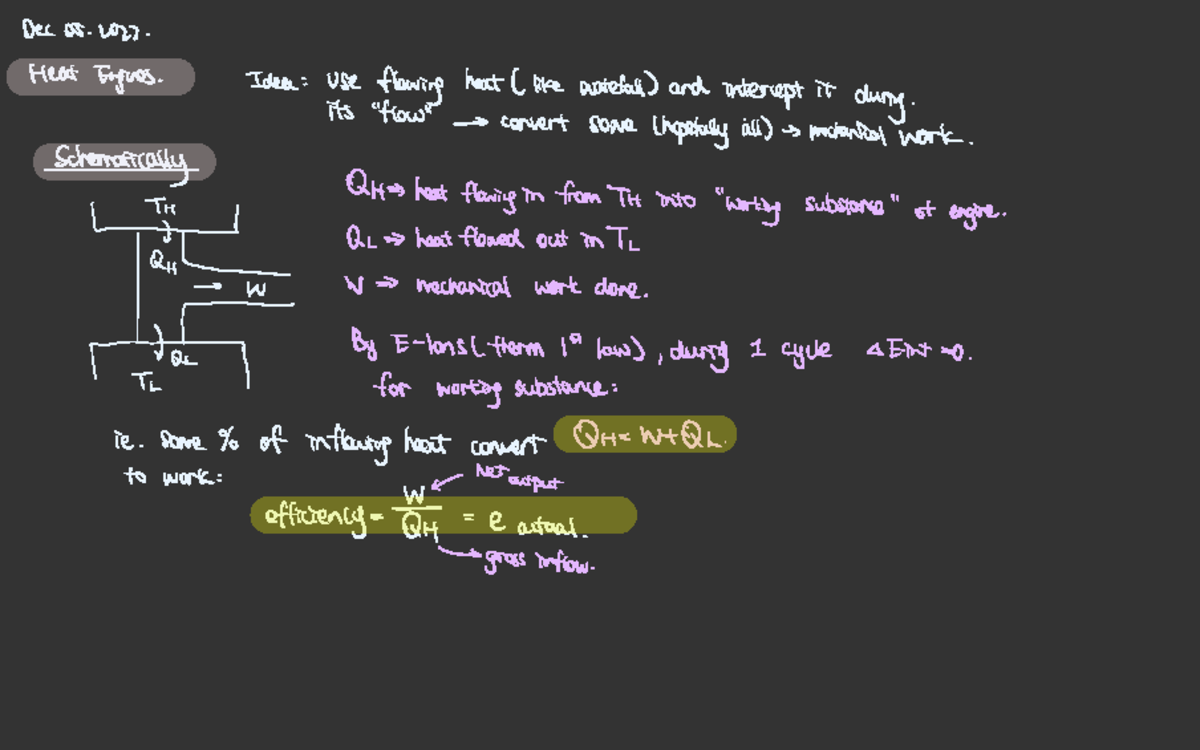 Dec 05. 2023.
Heat Engines.
Idea: use flowing heat (like waterfall) and intercept it during
its "flow" → convert some (hopefully all) → mechanical work.
Schematically
QH ⇒ heat flowing in from TH into "working substance" of engine.
QL ⇒ heat flowed out in TL
W ⇒ mechanical work done.
TH
QH
→ W
QL
TL
By E-cons (therm 1st law), during 1 cycle ΔEint = 0.
for working substance:
ie. some % of inflowing heat convert QH = W+QL.
to work:
Net output
efficiency = W/QH = e actual.
gross inflow.